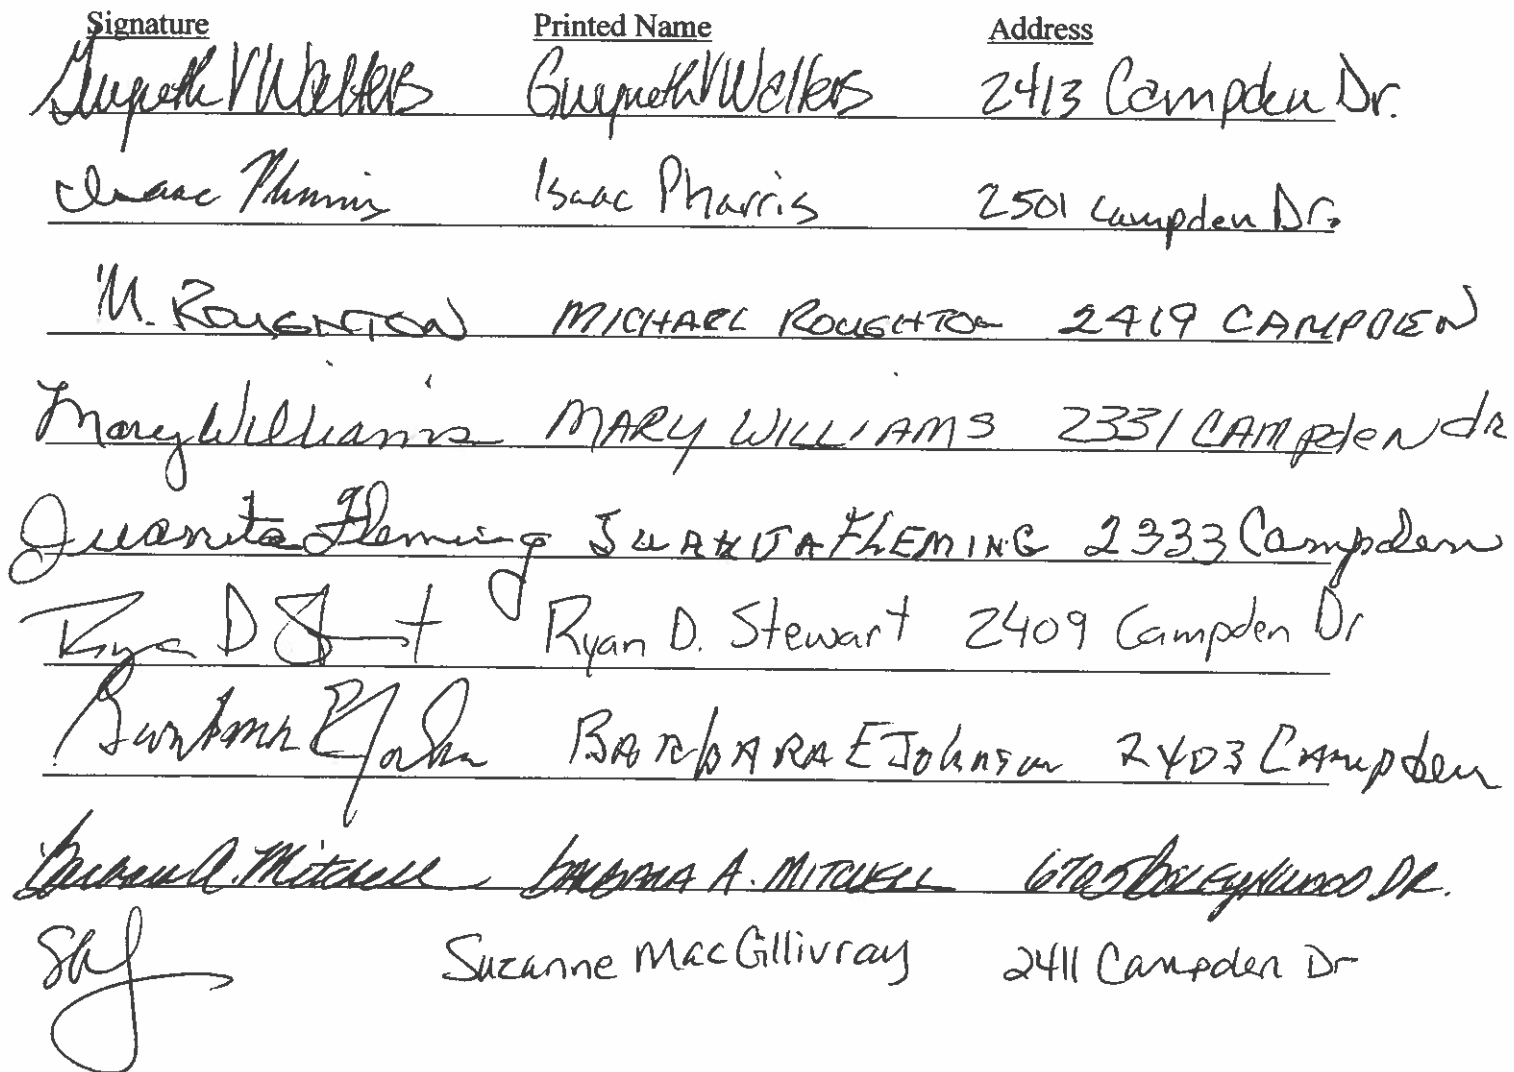 Signature Printed Name Address
Gwyneth V Walters Gwyneth V Walters 2413 Campden Dr.
Isaac Pharris Isaac Pharris 2501 Campden Dr.
M. ROUGHTON MICHAEL ROUGHTON 2419 CAMPDEN
Mary Williams MARY WILLIAMS 2331 CAMPdeN dR
Juanita Fleming JUANITA FLEMING 2333 Campden
Ryan D Stewart Ryan D. Stewart 2409 Campden Dr
Barbara E Johnson BARbARA E Johnson 2403 CAmpden
Barbara A. Mitchell BARBARA A. MITCHELL 6705 BOLEYNWOOD DR.
Suzanne MacGillivray 2411 Campden Dr